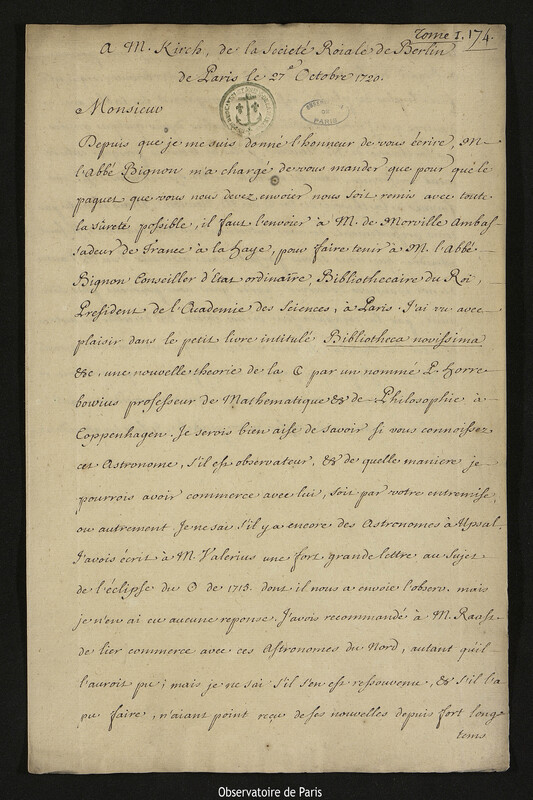 Tome I. 174.
A M. Kirch, de la Societé Roiale de Berlin
de Paris le 27e Octobre 1720.
Monsieur
Depuis que je me suis donné l'honneur de vous écrire, M.
l'Abbé Bignon m'a chargé de vous mander que pour que le
paquet que vous nous devez envoier nous soit remis avec toute
la sûreté possible, il faut l'envoier à M. de Morville Ambas-
sadeur de France à la Haye, pour faire tenir à M. l'Abbé
Bignon Conseiller d'État ordinaire, Bibliothecaire du Roi,
President de l'Academie des Sciences, à Paris. J'ai vu avec
plaisir dans le petit livre intitulé Bibliotheca novissima
&c, une nouvelle theorie de la ☾ par un nommé P. Horre
bowius professeur de Mathematique & de Philosophie à
Coppenhagen. Je serois bien aise de savoir si vous connoissez
cet Astronome, s'il est observateur, & de quelle maniere je
pourrois avoir commerce avec lui, soit par votre entremise,
ou autrement. Je ne sai s'il y a encore des Astronomes à Upsal.
J'avois écrit à M. Valerius une fort grande lettre au sujet
de l'éclipse du ☉ de 1715. dont il nous a envoié l'observ. mais
je n'en ai eu aucune reponse. J'avois recommandé à M. Raast
de lier commerce avec ces Astronomes du Nord, autant qu'il
l'auroit pu; mais je ne sai s'il s'en est ressouvenu, & s'il l'a
pu faire, n'aiant point reçu de ses nouvelles depuis fort long
tems
Observatoire de Paris